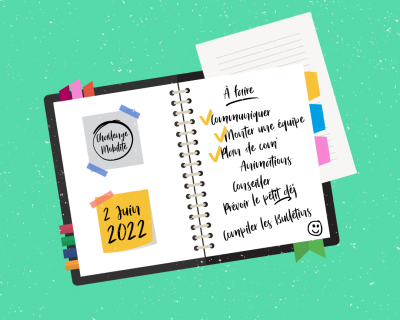 Challenge
Mobilité
2 Juin
2022
À faire
Communiquer
Monter une équipe
Plan de com'
Animations
Conseiller
Prévoir le petit déj
Compiler les Bulletins